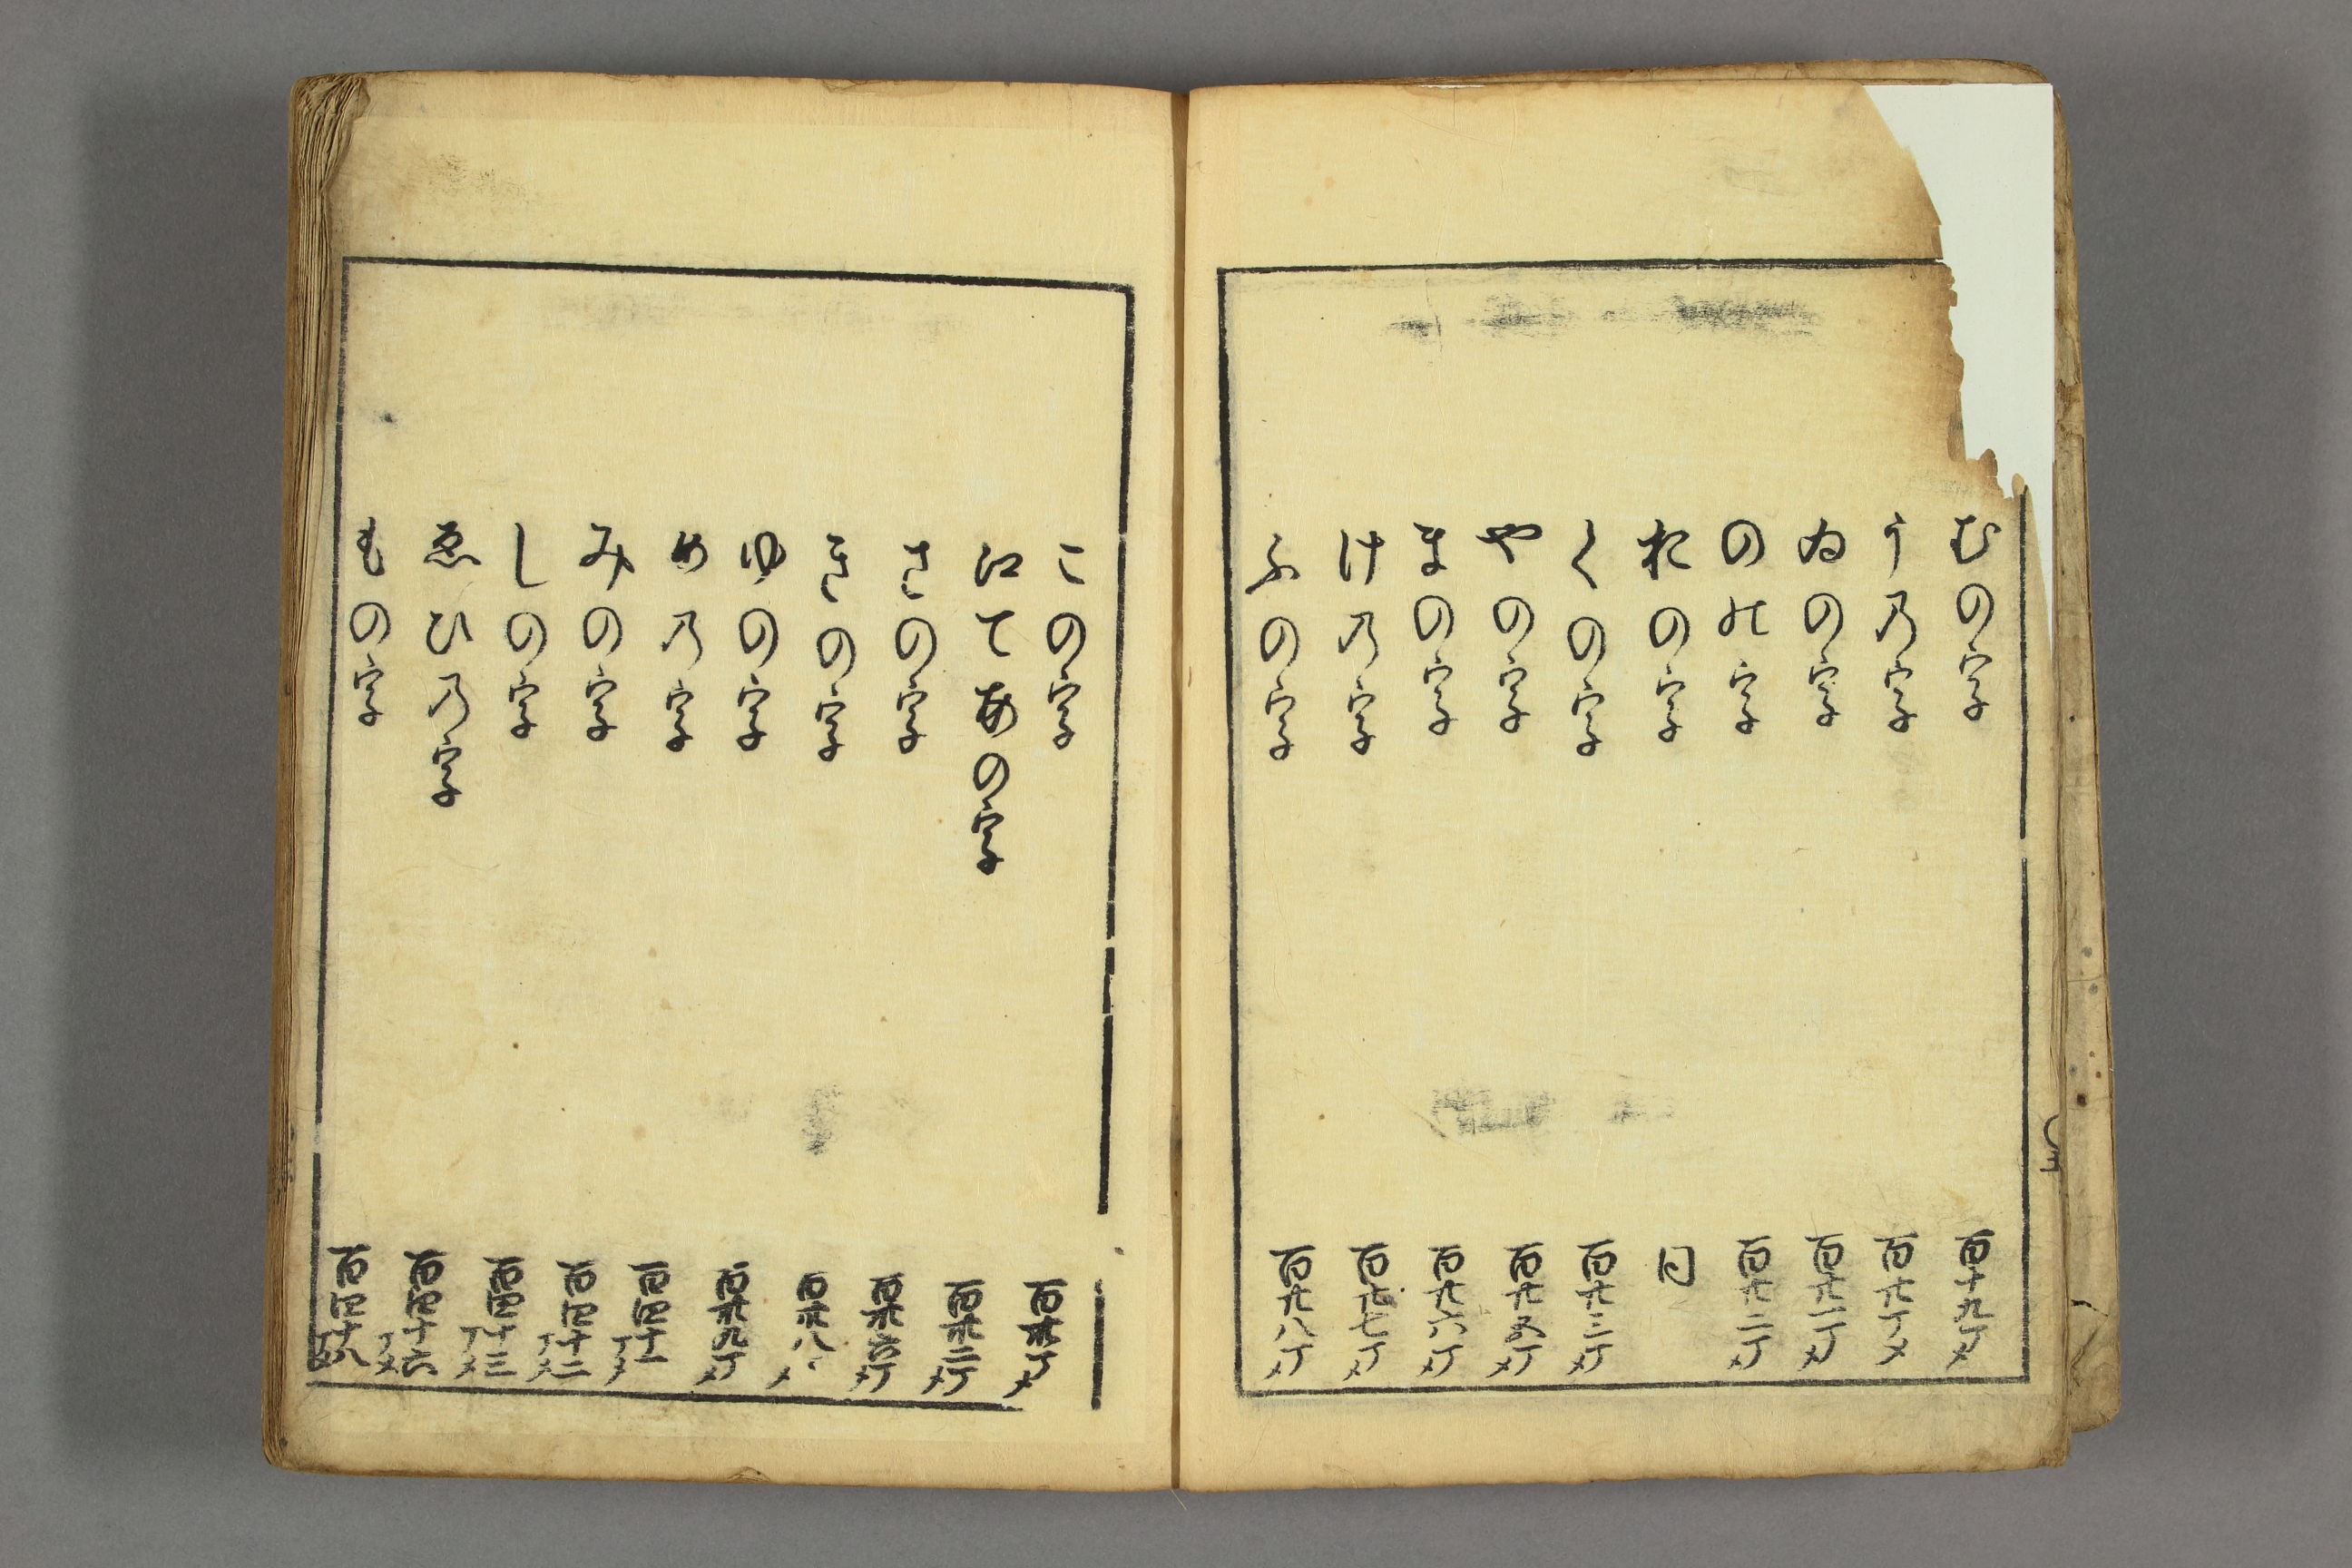 むの字 百十九丁メ
う乃字 百廿丁メ
ゐの字 百廿一丁メ
のの字 百廿二丁メ
おの字 同
くの字 百廿三丁メ
やの字 百廿五丁メ
まの字 百廿六丁メ
け乃字 百廿七丁メ
ふの字 百廿八丁メ
この字 百卅丁メ
江てあの字 百卅二丁メ
さの字 百卅六丁メ
きの字 百卅八丁メ
ゆの字 百卅九丁メ
め乃字 百四十一丁メ
みの字 百四十二丁メ
しの字 百四十三丁メ
ゑひ乃字 百四十六丁メ
もの字 百四十八丁メ